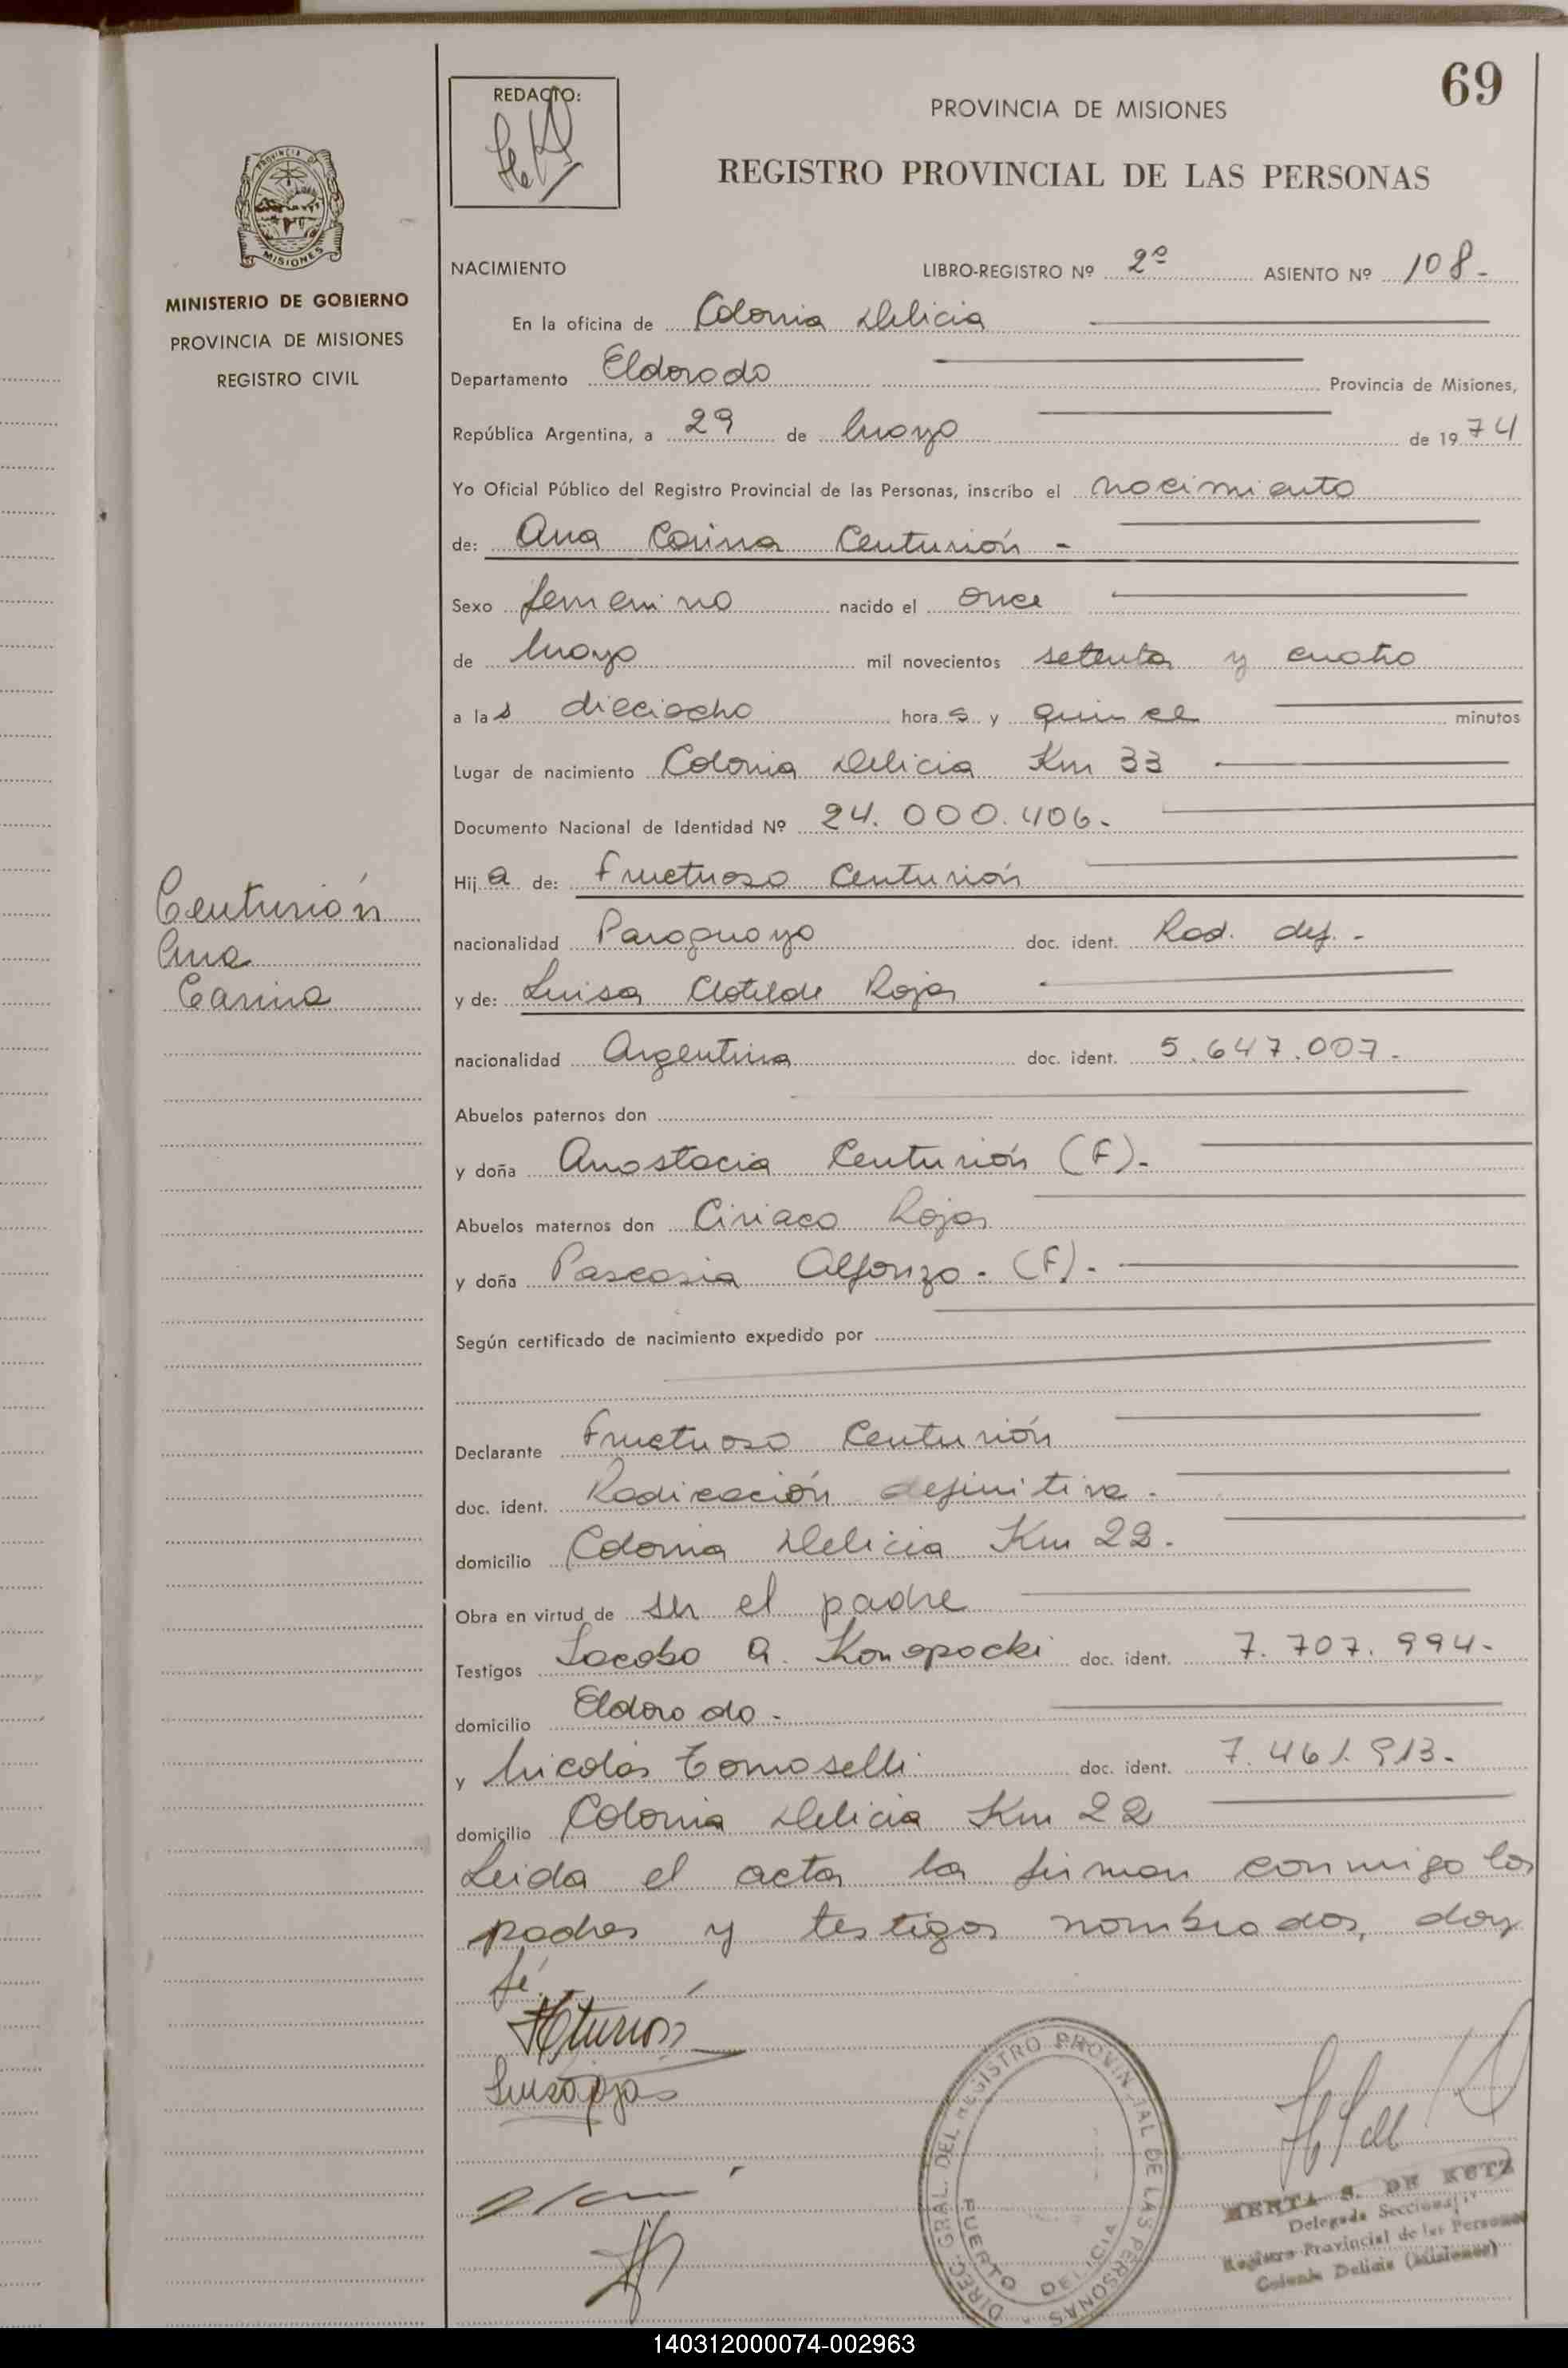 69
REDACTO:
PROVINCIA DE MISIONES
REGISTRO PROVINCIAL DE LAS PERSONAS
PROVINCIA DE
MISIONES
MINISTERIO DE GOBIERNO
PROVINCIA DE MISIONES
REGISTRO CIVIL
NACIMIENTO LIBRO-REGISTRO Nº 2º ASIENTO Nº 108.-
En la oficina de Colonia Delicia
Departamento Eldorado Provincia de Misiones,
República Argentina, a 29 de Mayo de 1974
Yo Oficial Público del Registro Provincial de las Personas, inscribo el nacimiento
de: Ana Carina Centurión -
Sexo femenino nacido el once
de Mayo mil novecientos setenta y cuatro
a las dieciocho horas y quince minutos
Lugar de nacimiento Colonia Delicia Km 33
Documento Nacional de Identidad Nº 24.000.406.-
Hija de: Fructuoso Centurión
Centurión
Ana
Carina
nacionalidad Paraguaya doc. ident. Rad. def. -
y de: Luisa Clotilde Rojas
nacionalidad Argentina doc. ident. 5.647.007.-
Abuelos paternos don
y doña Anastacia Centurión (F).-
Abuelos maternos don Ciriaco Rojas
y doña Pascasia Alfonzo.- (F).-
Según certificado de nacimiento expedido por
Declarante Fructuoso Centurión
doc. ident. Radicación definitiva.-
domicilio Colonia Delicia Km 22.
Obra en virtud de ser el padre
Testigos Jacobo A. Konopacki doc. ident. 7.707.994-
domicilio Eldorado.-
y Nicolás Tomaselli doc. ident. 7.461.913.-
domicilio Colonia Delicia Km 22
Leida el acta la firman conmigo los
padres y testigos nombrados, doy
fé.
Luisa Rojas
DIREC. GRAL. DEL REGISTRO PROVINCIAL DE LAS PERSONAS
PUERTO DELICIA
HERTA S. DE KUTZ
Delegada Seccional
Registro Provincial de las Personas
Colonia Delicia (Misiones)
140312000074-002963